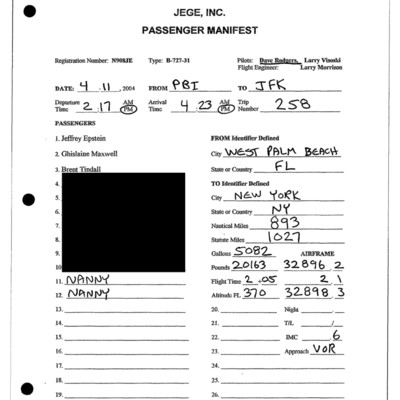 JEGE, INC.
PASSENGER MANIFEST
Registration Number: N908JE Type: B-727-31 Pilots: Dave Rodgers, Larry Visoski
Flight Engineer: Larry Morrison
DATE: 4.11, 2004 FROM PBI TO JFK
Departure Time 2.17 AM PM Arrival Time 4.23 AM PM Trip Number 258
PASSENGERS
1. Jeffrey Epstein FROM Identifier Defined
2. Ghislaine Maxwell City WEST PALM BEACH
3. Brent Tindall State or Country FL
4. TO Identifier Defined
5. City NEW YORK
6. State or Country NY
7. Nautical Miles 893
8. Statute Miles 1027
9. Gallons 5082 AIRFRAME
10. Pounds 20163 32896.2
11. NANNY Flight Time 2.05 2.1
12. NANNY Altitude: FL 370 32898.3
13. 20. Nigla
14. 21. T/L /
15. 22. IMC .6
16. 23. Approach VOR
17. 24.
18. 25.
19. 26.